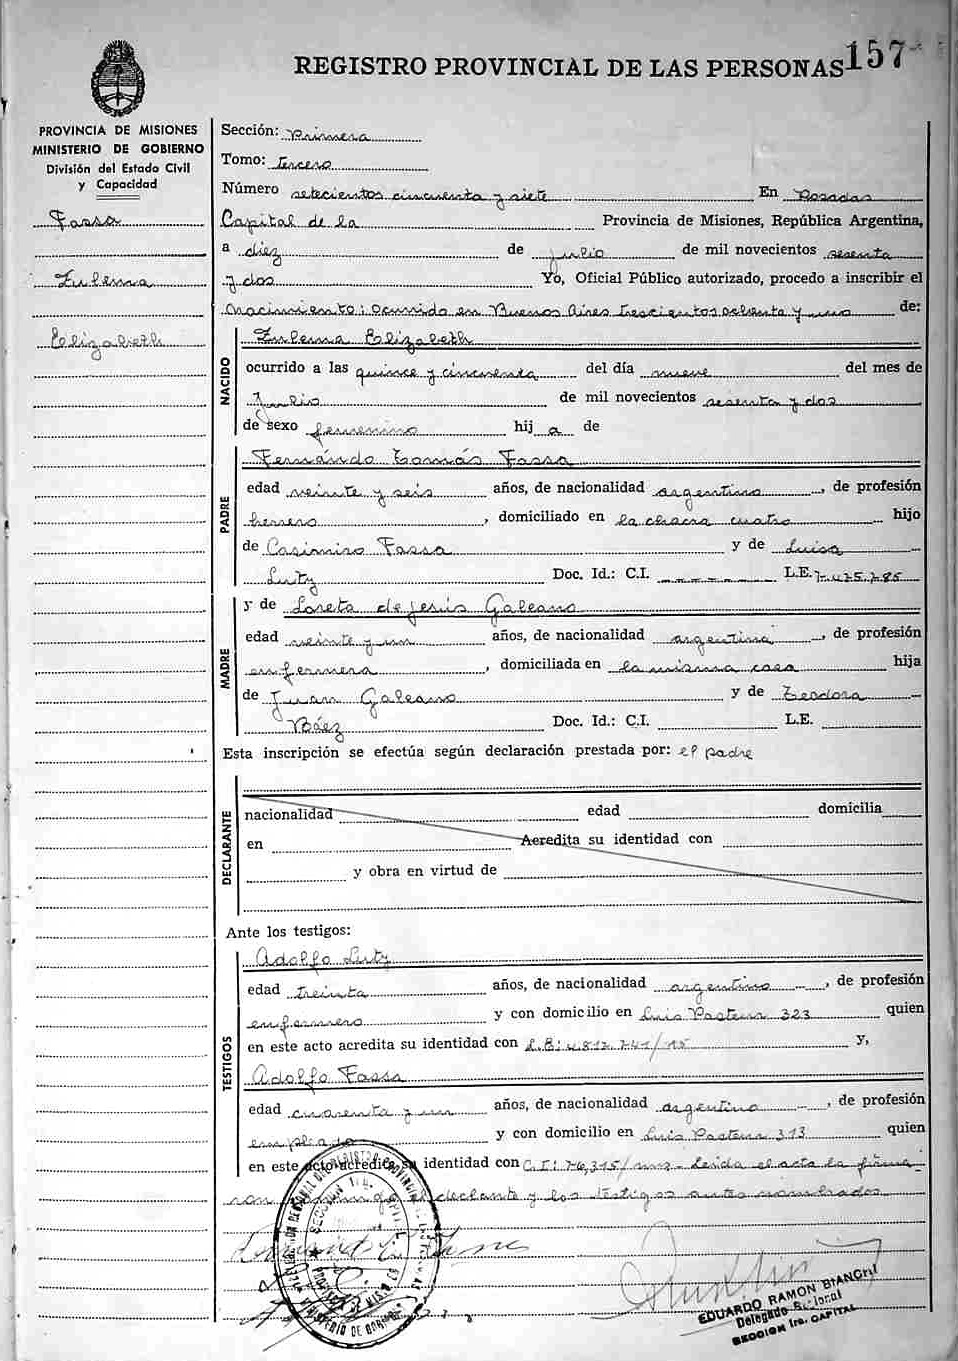 REGISTRO PROVINCIAL DE LAS PERSONAS 157
PROVINCIA DE MISIONES
MINISTERIO DE GOBIERNO
División del Estado Civil
y Capacidad
Fassa
Zulema
Elizabeth
Sección: Primera
Tomo: tercero
Número setecientos cincuenta y siete En Posadas
Capital de la Provincia de Misiones, República Argentina,
a diez de julio de mil novecientos sesenta
y dos Yo, Oficial Público autorizado, procedo a inscribir el
nacimiento: ocurrido en Buenos Aires trescientos ochenta y uno de:
NACIDO
Zulema Elizabeth
ocurrido a las quince y cincuenta del día nueve del mes de
Julio de mil novecientos sesenta y dos
de sexo femenino hij a de
PADRE
Fernándo Tomás Fassa
edad veinte y seis años, de nacionalidad argentino, de profesión
herrero, domiciliado en la chacra cuatro hijo
de Casimiro Fassa y de Luisa
Lutz Doc. Id.: C.I. - - - - - - - L.E. 7.475.785
MADRE
y de Loreta de jesús Galeano
edad veinte y un años, de nacionalidad argentina, de profesión
enfermera, domiciliada en la misma casa hija
de Juan Galeano y de Teodora
Báez Doc. Id.: C.I. L.E.
Esta inscripción se efectúa según declaración prestada por: el padre
DECLARANTE
nacionalidad edad domicilia
en Acredita su identidad con
y obra en virtud de
Ante los testigos:
TESTIGOS
Adolfo Lutz
edad treinta años, de nacionalidad argentino, de profesión
enfermero y con domicilio en Luis Pasteur 323 quien
en este acto acredita su identidad con y,
Adolfo Fassa
edad cuarenta y un años, de nacionalidad argentino, de profesión
empleado y con domicilio en Luis Pasteur 313 quien
en este acto acredita su identidad con C.I: 76,315/ Leída el acta la firma
declarante y los testigos antes nombrados
EDUARDO RAMON BIANCHI
Delegado Seccional
SECCION 1ra. CAPITAL